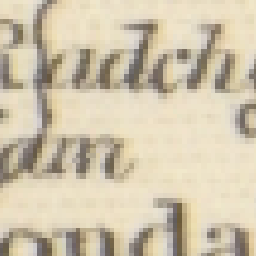 Radch
am
onda